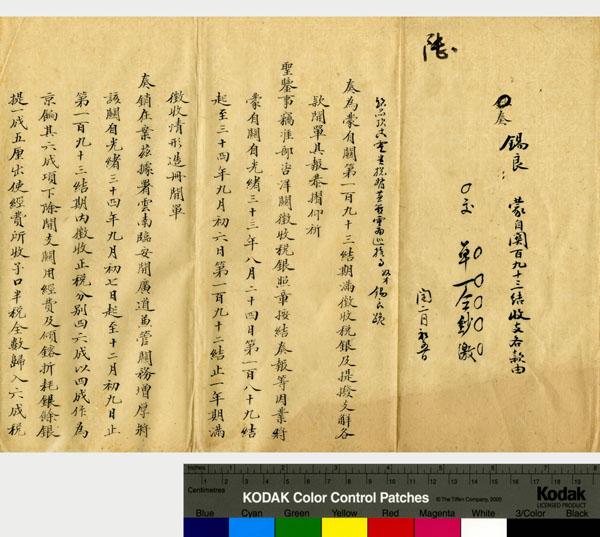 奏 錫良 蒙自関百九十三結收支各款由
交 單一仝鈔繳
閏二月初
頭品頂戴雲貴總督兼管雲南巡撫事奴才錫良跪
奏為蒙自關第一百九十三結期滿徵收稅銀及提撥支解各
款開單具報恭摺仰祈
聖鑒事竊准部咨洋關徵收稅銀照章按結奏報等因業將
蒙自關自光緒三十三年八月二十四日第一百八十九結
起至三十四年九月初六日第一百九十二結止一年期滿
徵收情形造冊開單
奏銷在案茲據署雲南臨安開廣道兼管關務增厚將
該關自光緒三十四年九月初七日起至十二月初九日止
第一百九十三結期內徵收正稅分別四六成以四成作為
京餉其六成項下除開支關用經費及傾鎔折耗銀餘銀
提一成五厘出使經費所收子口半稅全數歸入六成稅
Inches 1 2 3 4 5 6 7 8
Centimetres 1 2 3 4 5 6 7 8 9 10 11 12 13 14 15 16 17 18 19
KODAK Color Control Patches © The Tiffen Company, 2000 Kodak
LICENSED PRODUCT
Blue Cyan Green Yellow Red Magenta White 3/Color Black